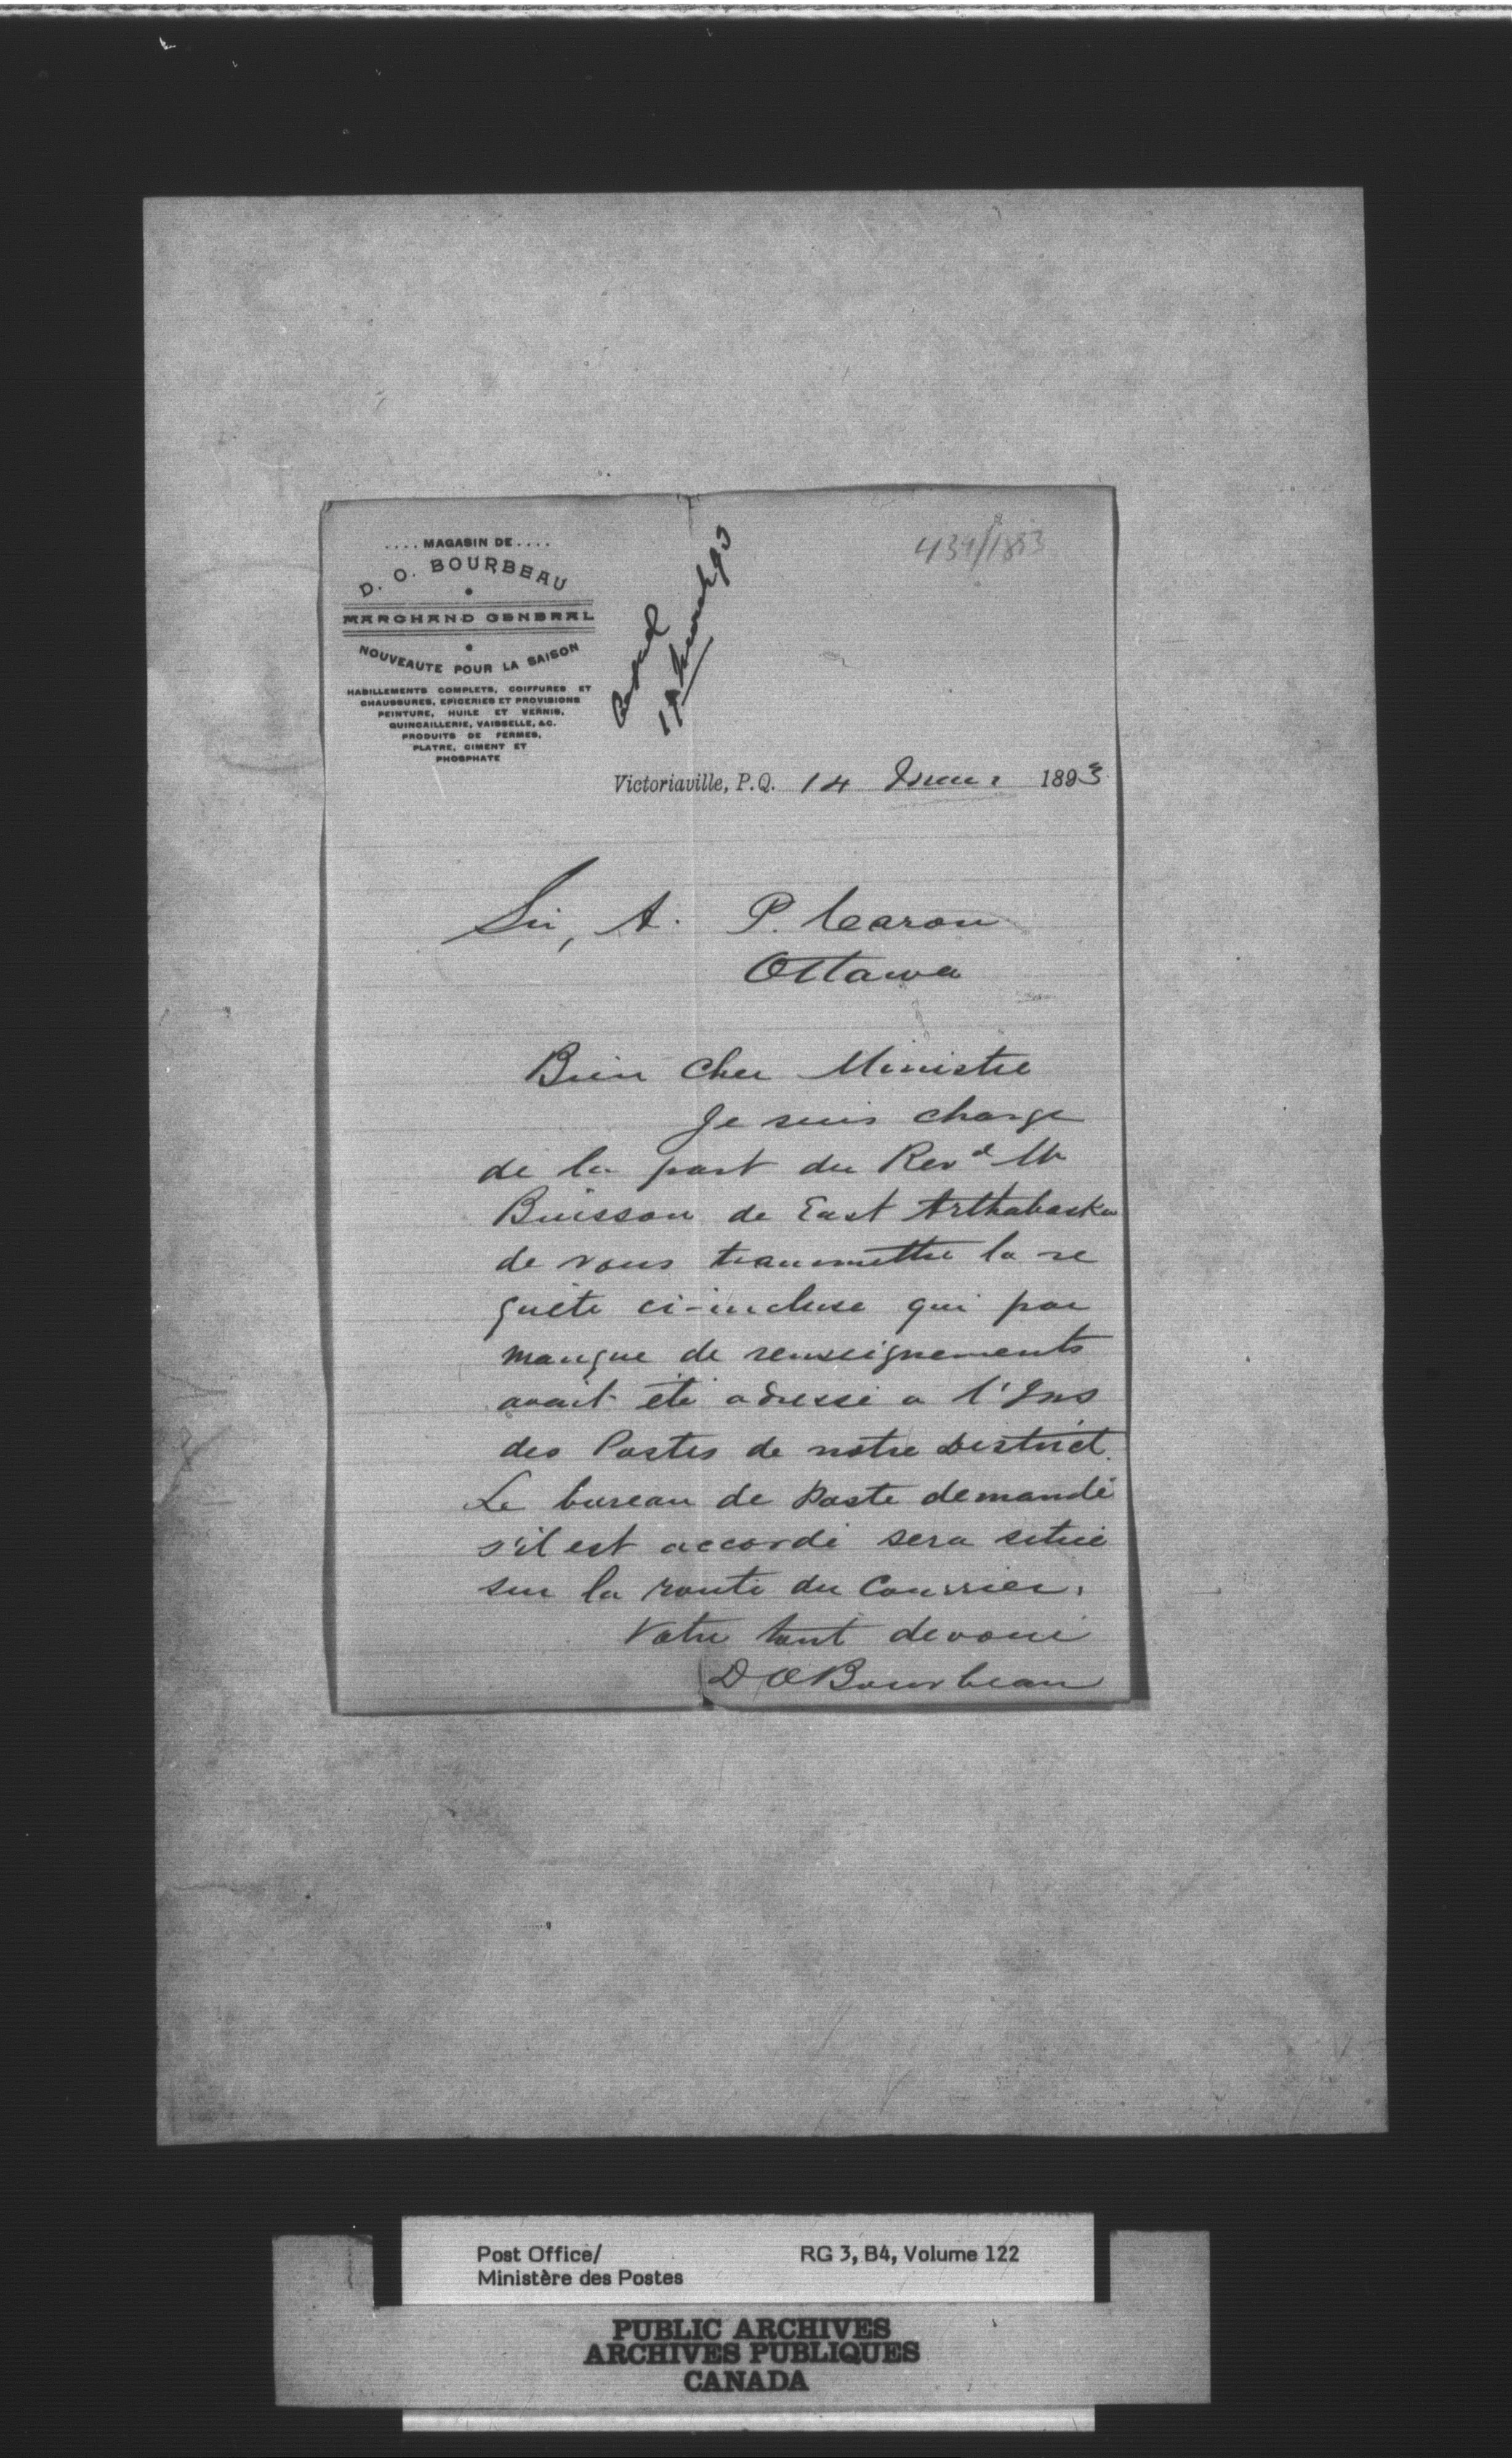 .... MAGASIN DE ....
D. O. BOURBEAU
MARCHAND GENERAL
NOUVEAUTE POUR LA SAISON
HABILLEMENTS COMPLETS, COIFFURES ET
CHAUSSURES, EPICERIES ET PROVISIONS
PEINTURE, HUILE ET VERNIS,
QUINCAILLERIE, VAISSELLE, &C.
PRODUITS DE FERMES,
PLATRE, CIMENT ET
PHOSPHATE
Victoriaville, P.Q. 14 1893
Sir, A. P. Caron
Ottawa
Bien Cher Ministre
Je suis charge
de la part du Revd Mr
Buisson de East Arthabaska
de vous transmettre la re
quête ci-incluse qui par
manque de renseignements
avait été adressé a l'Ins
des Postes de notre District.
Le bureau de Poste demandé
s'il est accordé sera situé
sur la route du Courrier.
Votre tout devoué
D O Bourbeau
Post Office/
Ministère des Postes
RG 3, B4, Volume 122
PUBLIC ARCHIVES
ARCHIVES PUBLIQUES
CANADA